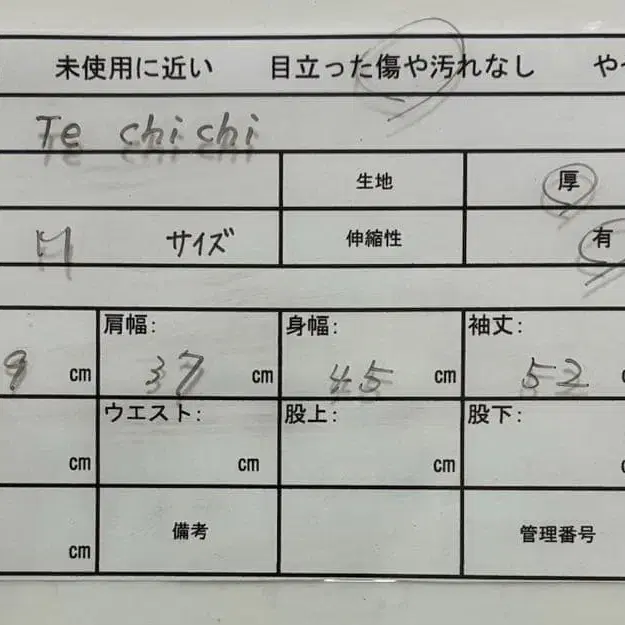 未使用に近い 目立った傷や汚れなし や
Te chichi
生地 厚
M サイズ 伸縮性 有
肩幅: 身幅: 袖丈:
9 cm 37 cm 45 cm 52 c
ウエスト: 股上: 股下:
cm cm cm c
cm 備考 管理番号